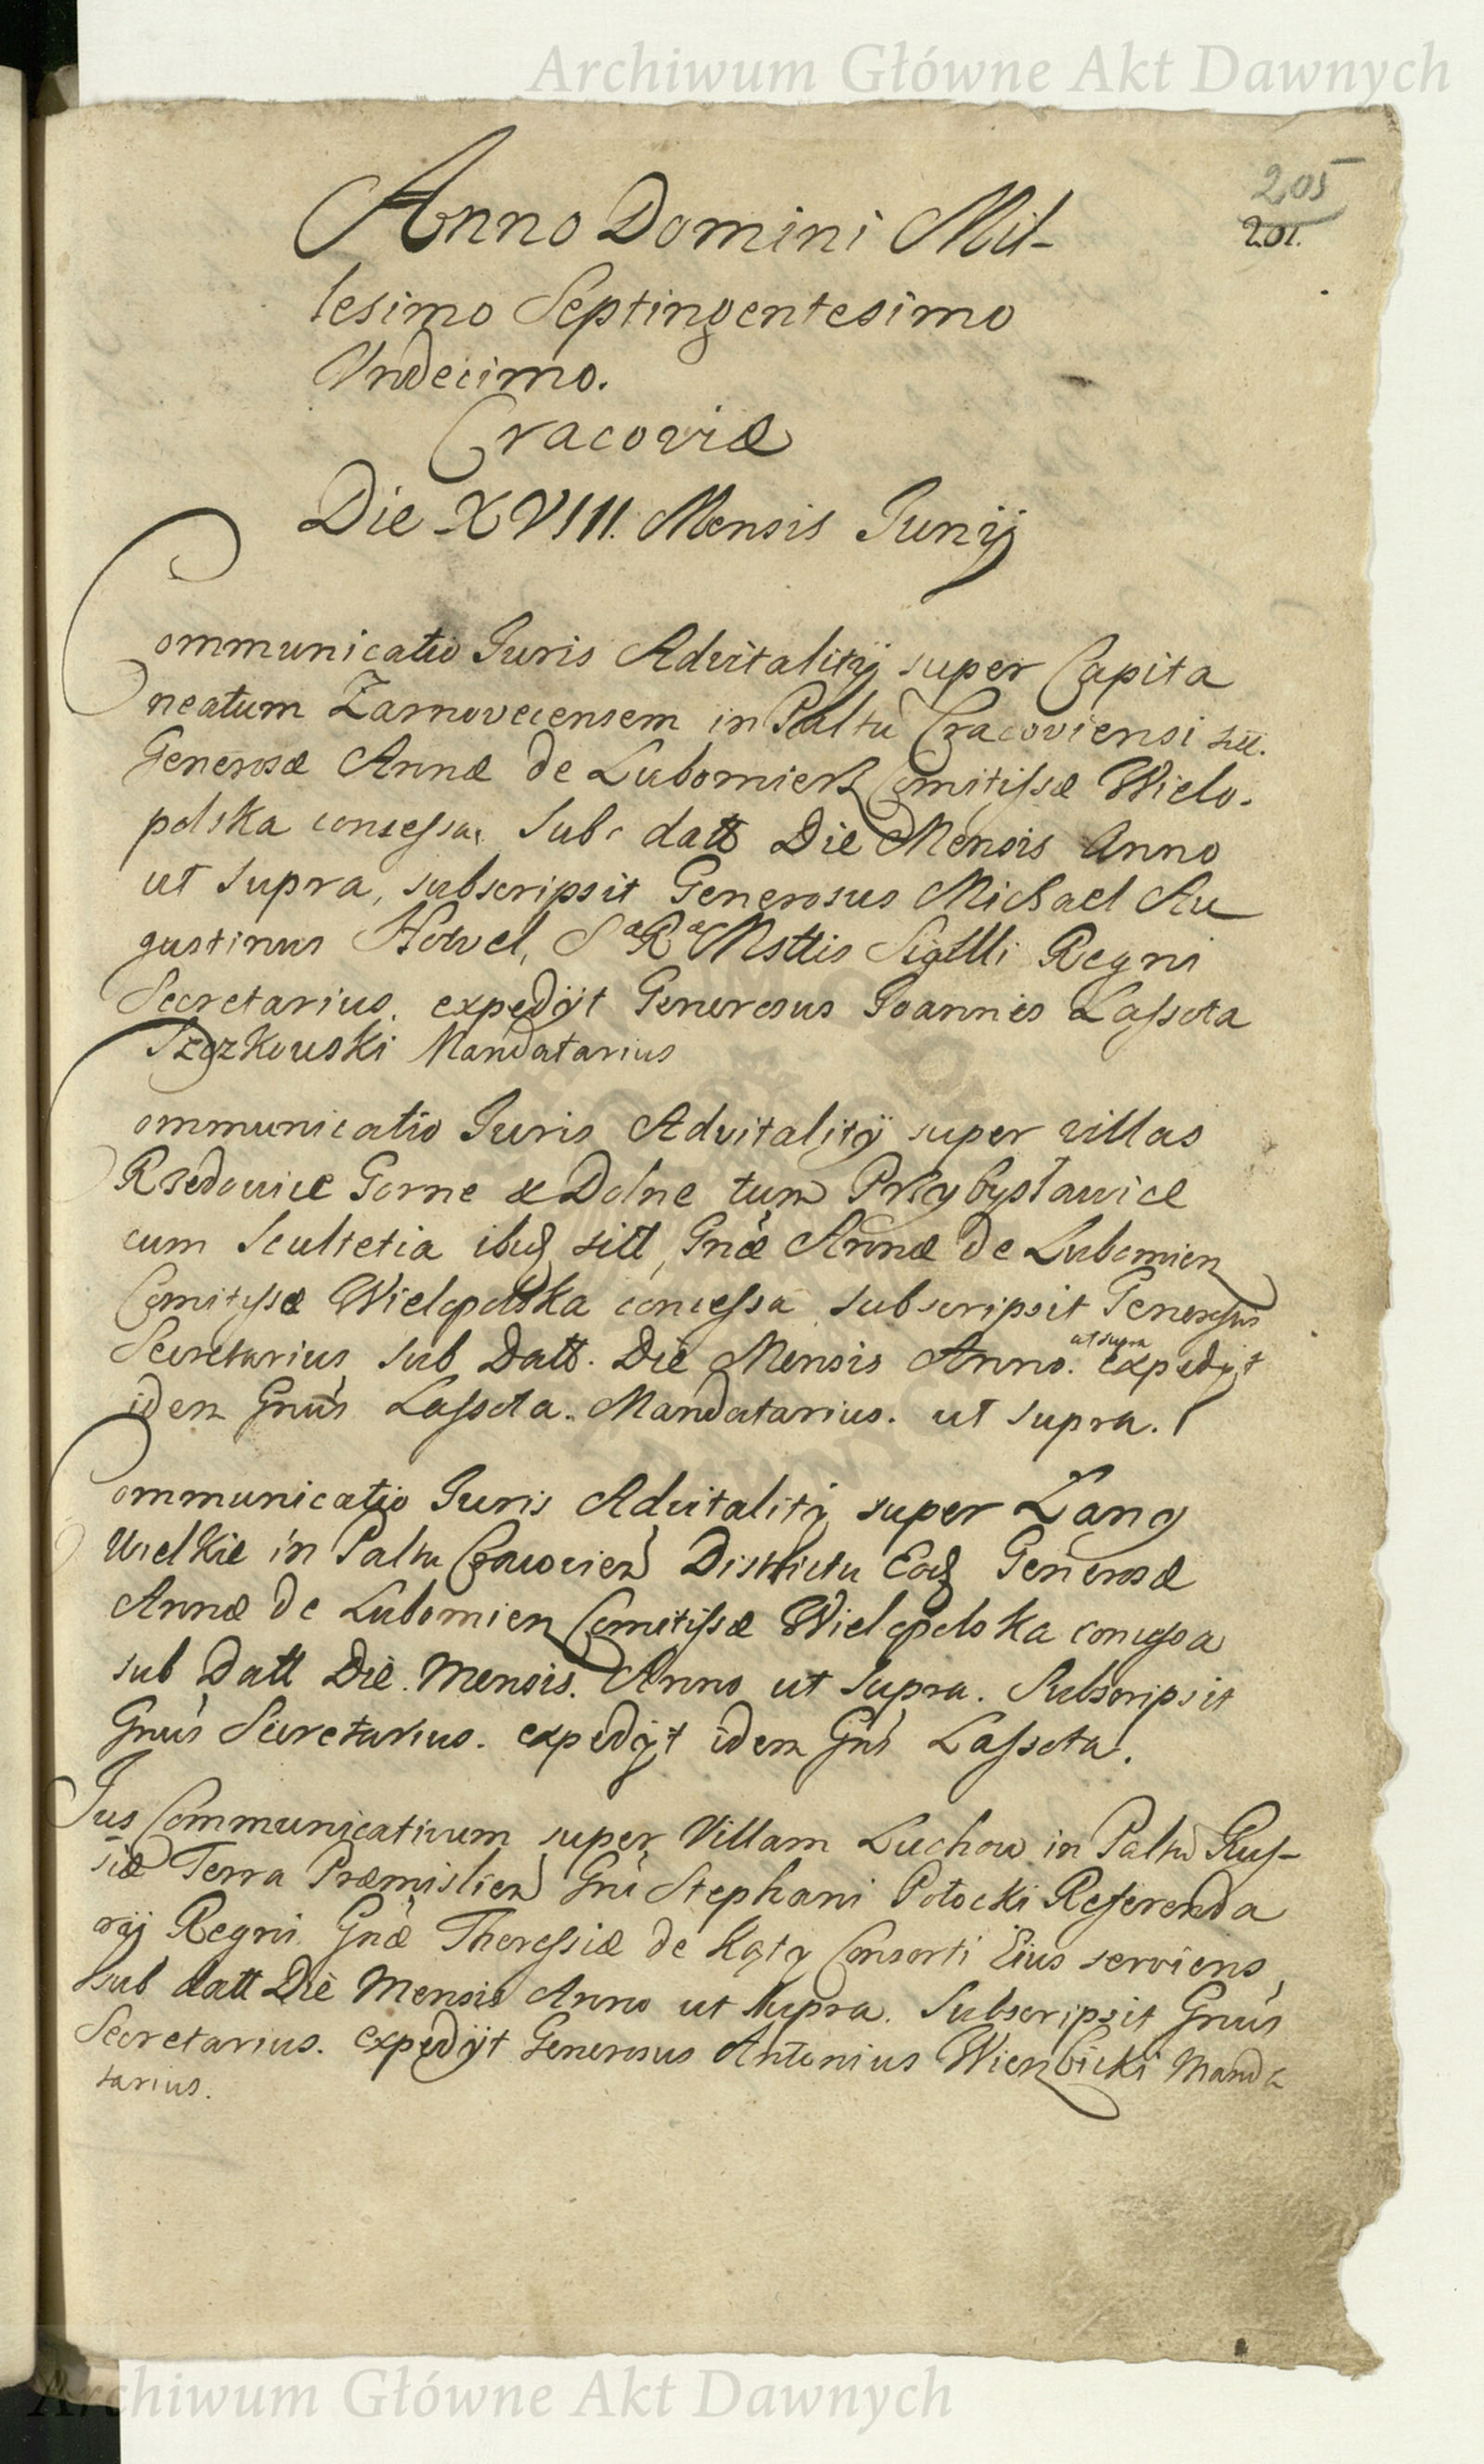 Archiwum Główne Akt Dawnych
205
201.
Anno Domini Mil-
lesimo Septingentesimo
Vndecimo.
Cracoviæ
Die XVIII. Mensis Junij
Communicatio Juris Advitalitÿ super Capita
neatum Zarnovecensem in Paltu Cracoviensi sitt.
Generosæ Annæ de Lubomierz Comitissæ Wielo-
polska concessa, Sub datt Die Mensis Anno
ut supra, subscripsit Generosus Michael Au
gustinus Howel, Sæ Ræ Mttis Sigilli Regni
Secretarius. expedijt Generosus Joannes Lassota
Mandatarius
Communicatio Juris Advitalitÿ super villas
Rzedowice Gorne & Dolne tum Przybysławice
cum Scultetia ibid sitt, Gnæ Annæ de Lubomien
Comitissæ Wielopolska concessa subscripsit Generosus
Secretarius sub Datt. Die Mensis Anno. ut supra expedijt
idem Gnus Lassota. Mandatarius. ut supra.
Communicatio Juris Advitalitÿ super Lany
Wielkie in Paltu Cracovien Districtu Eod Generosæ
Annæ de Lubomien Comitissæ Wielopolska concessa
sub Datt Die. Mensis. Anno ut supra. Subscripsit
Gnus Secretarius. expedijt idem Gns Lassota.
Jus Communicativum super Villam Luchow in Paltu Rus-
siæ Terra Præmislien Gni Stephani Potocki Referenda
rij Regni Gnæ Theressiæ de Kąty Consorti Eius serviens,
sub datt Die Mensis Anno ut supra. Subscripsit Gnus
Secretarius. expedijt Generosus Antonius Wierzbicki Manda
tarius.
Archiwum Główne Akt Dawnych